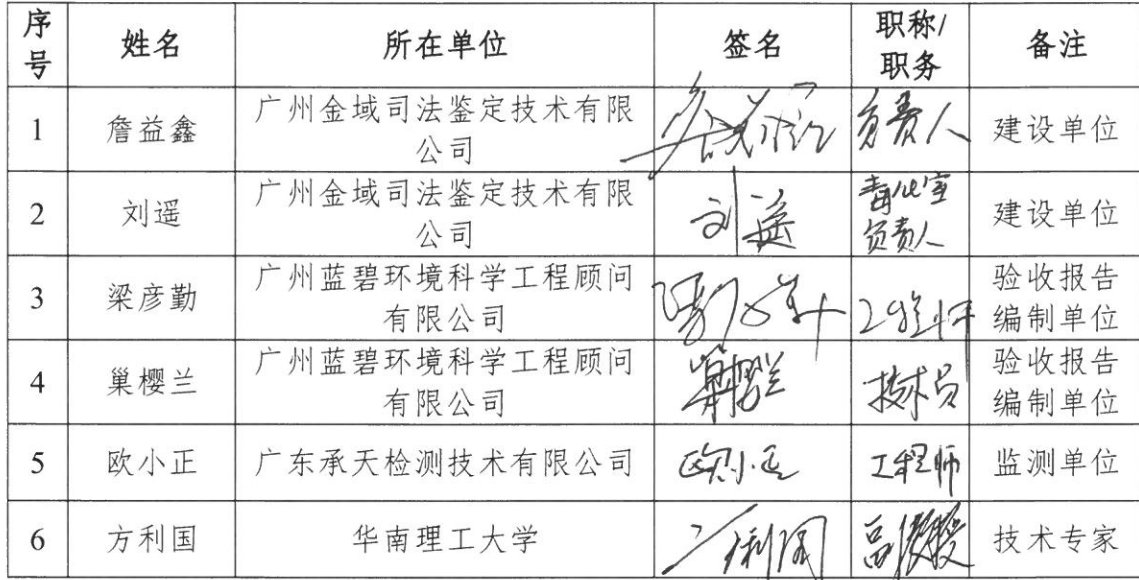 序号 姓名 所在单位 签名 职称/职务 备注
1 詹益鑫 广州金域司法鉴定技术有限公司 负责人 建设单位
2 刘遥 广州金域司法鉴定技术有限公司 刘遥 毒化室负责人 建设单位
3 梁彦勤 广州蓝碧环境科学工程顾问有限公司 工程师 验收报告编制单位
4 巢樱兰 广州蓝碧环境科学工程顾问有限公司 技术员 验收报告编制单位
5 欧小正 广东承天检测技术有限公司 欧小正 工程师 监测单位
6 方利国 华南理工大学 方利国 副教授 技术专家